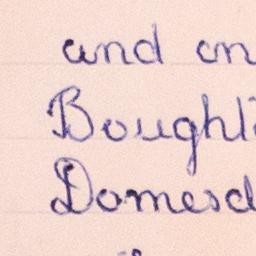 and on
Bought
Domesd